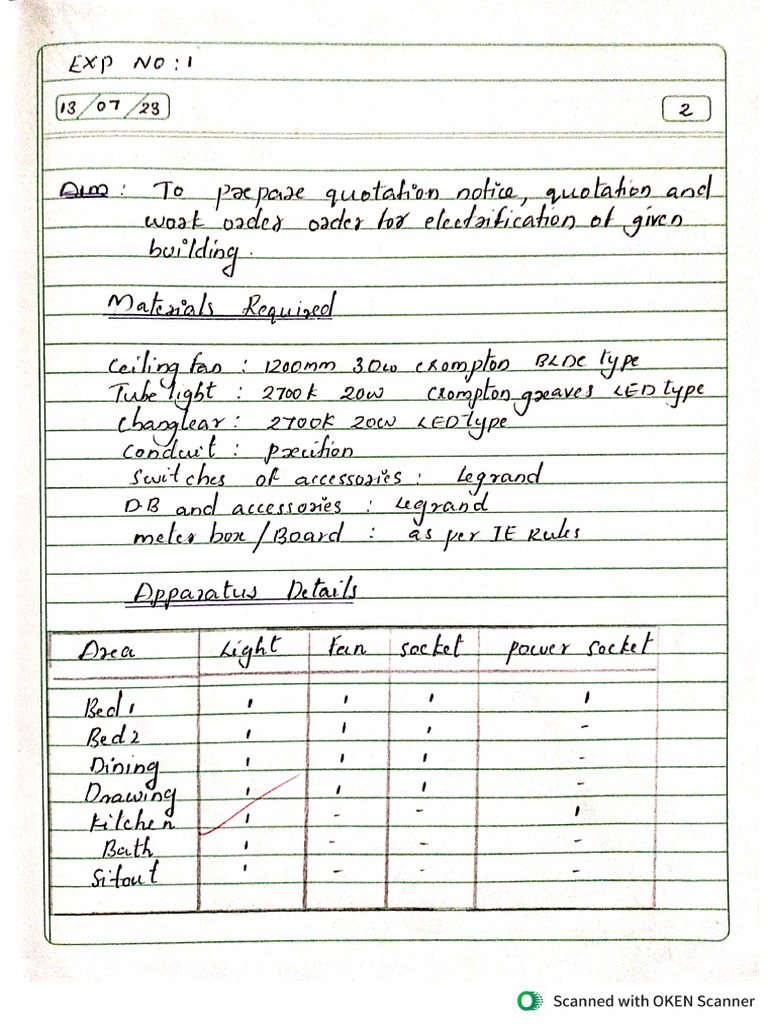 EXP NO: 1
13/07/23
2
Aim: To prepare quotation notice, quotation and
work order order for electrification of given
building.
Materials Required
Ceiling fan: 1200mm 30w crompton BLDC type
Tube light: 2700k 20w Crompton greaves LED type
2700k 20w LED type
Conduit: precition
Switches of accessories: Legrand
DB and accessories: Legrand
meter box/Board: as per IE Rules
Apparatus Details
Area Light Fan socket power socket
Bed 1 1 1 1 1
Bed 2 1 1 1 -
Dining 1 1 1 -
Drawing 1 1 1 -
Kitchen 1 - - 1
Bath 1 - - -
Sitout 1 - - -
Scanned with OKEN Scanner